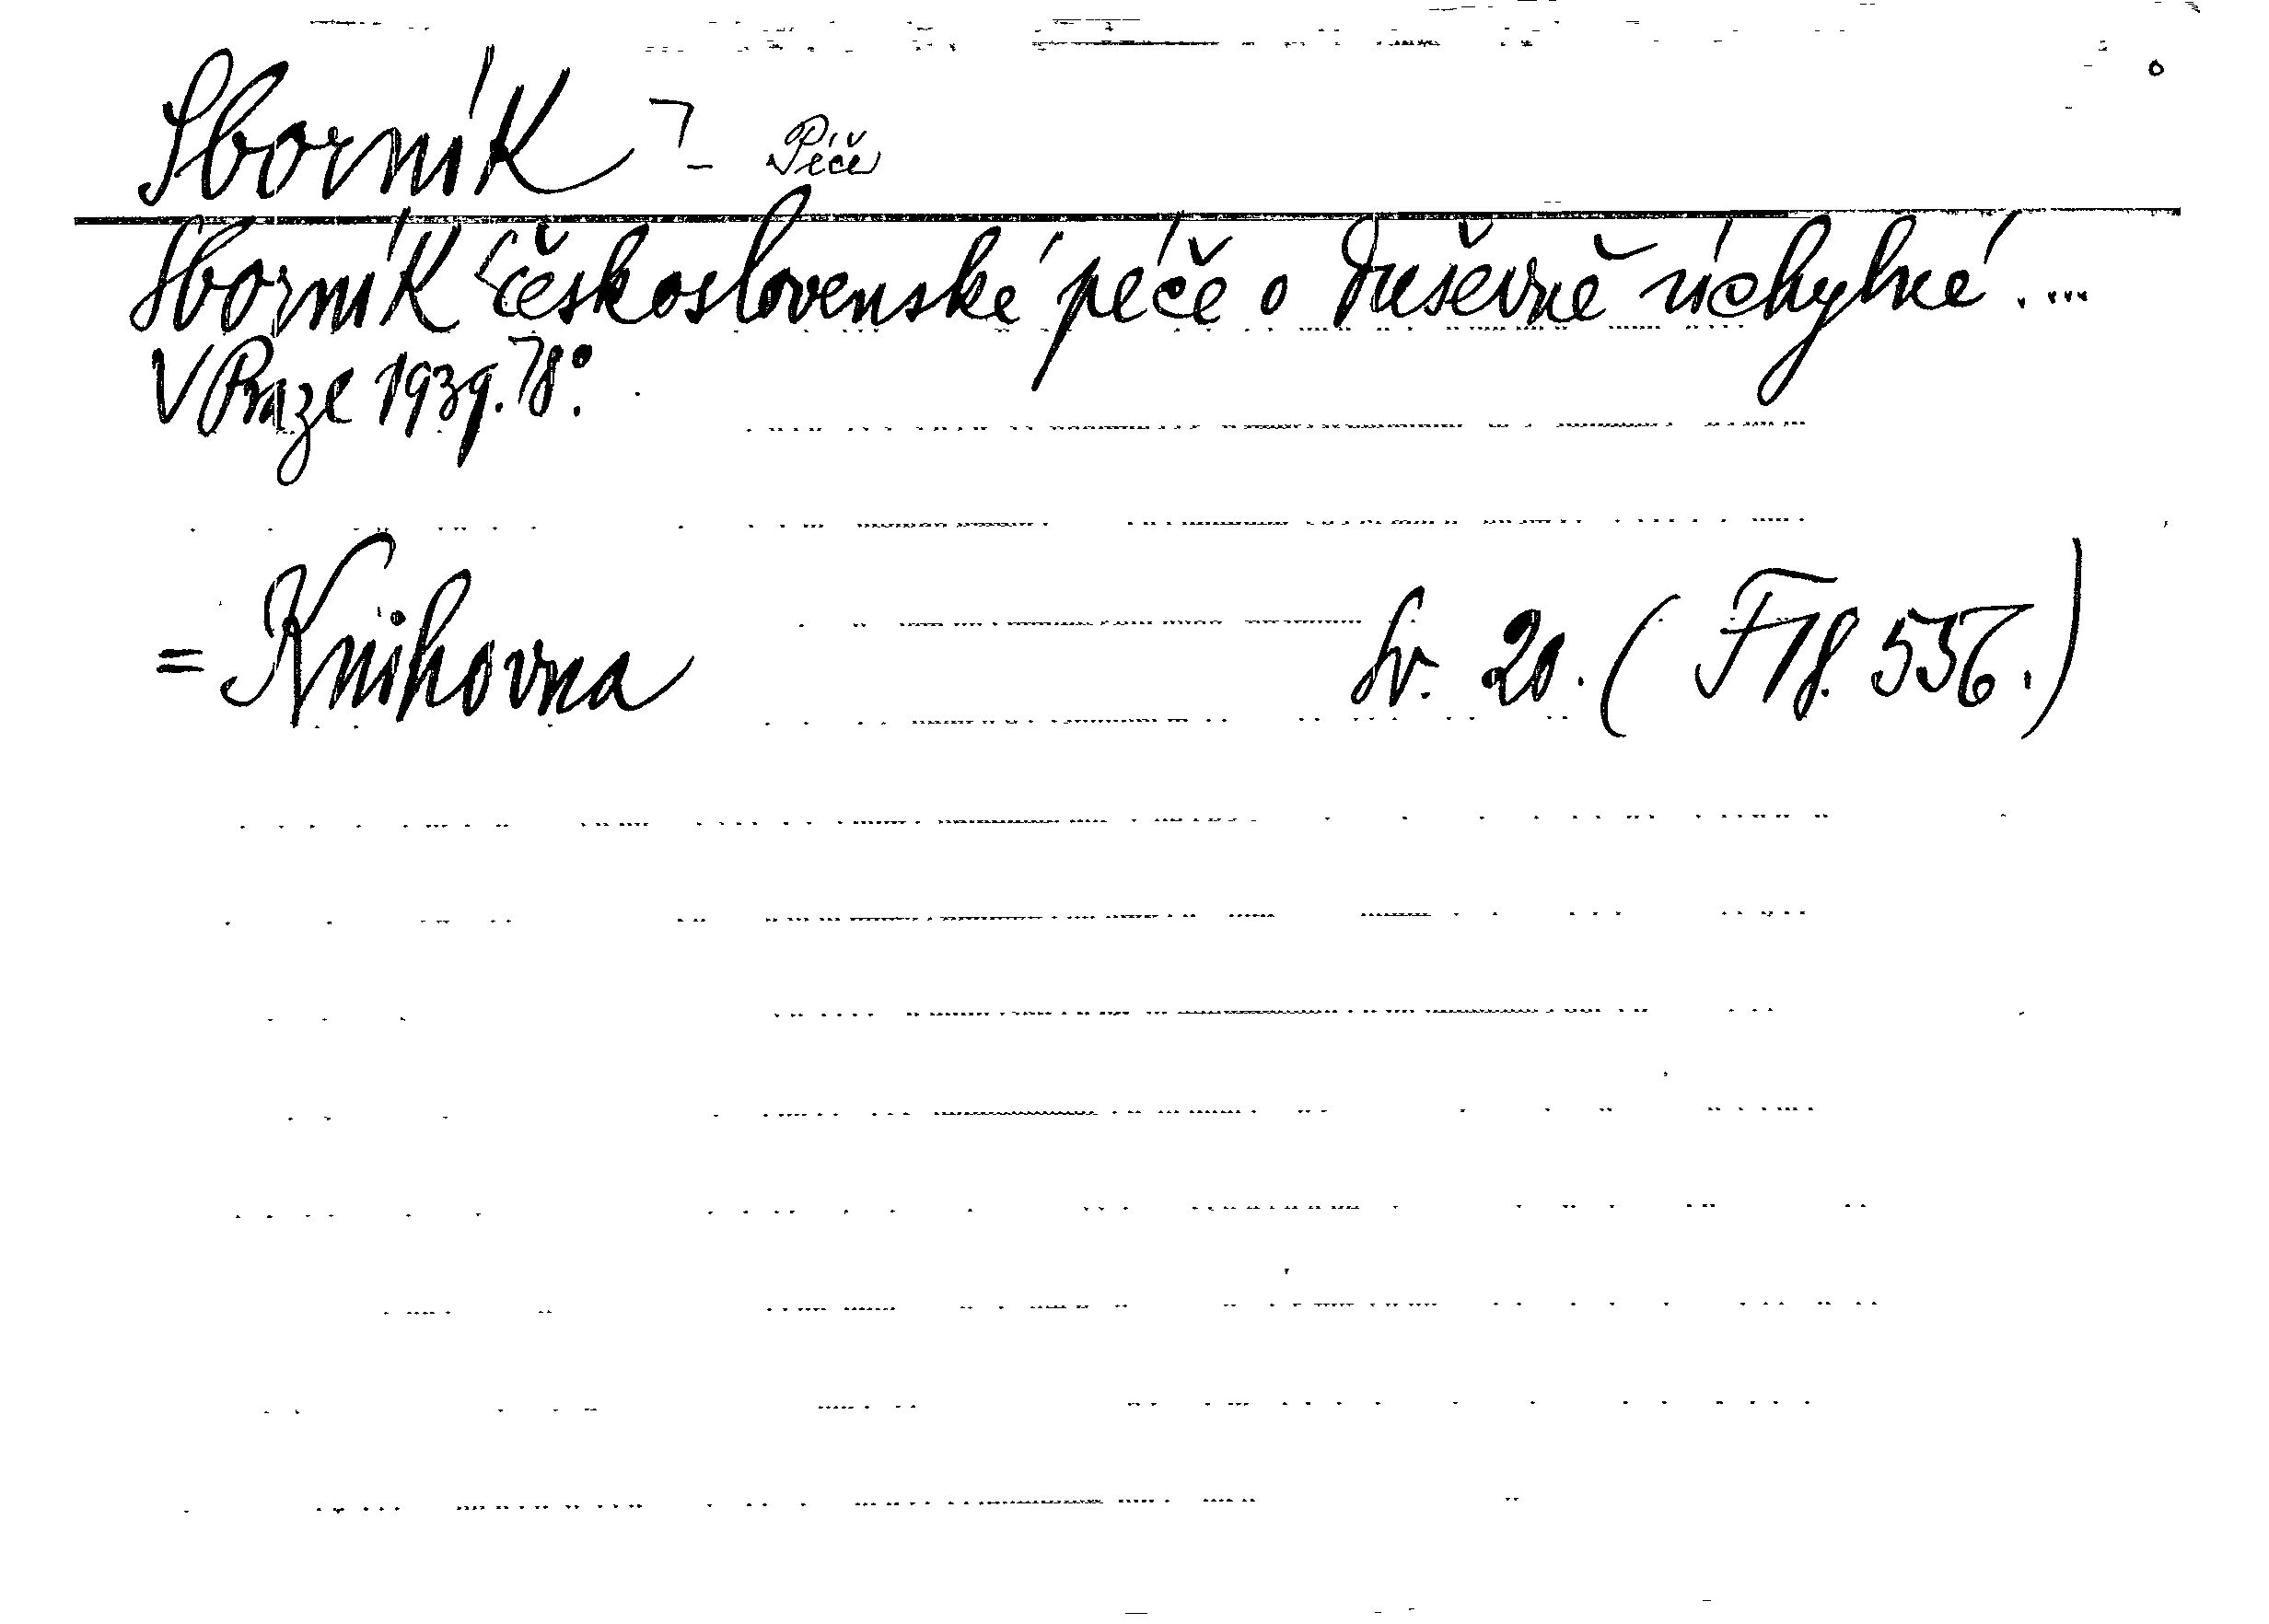 Sborník ⁊ - Péče
Sborník československé péče o duševně úchylné. ...
V Praze 1939. ⁊ 8°.
= Knihovna Sv. 20. ( F ⁊ 8. 556. )